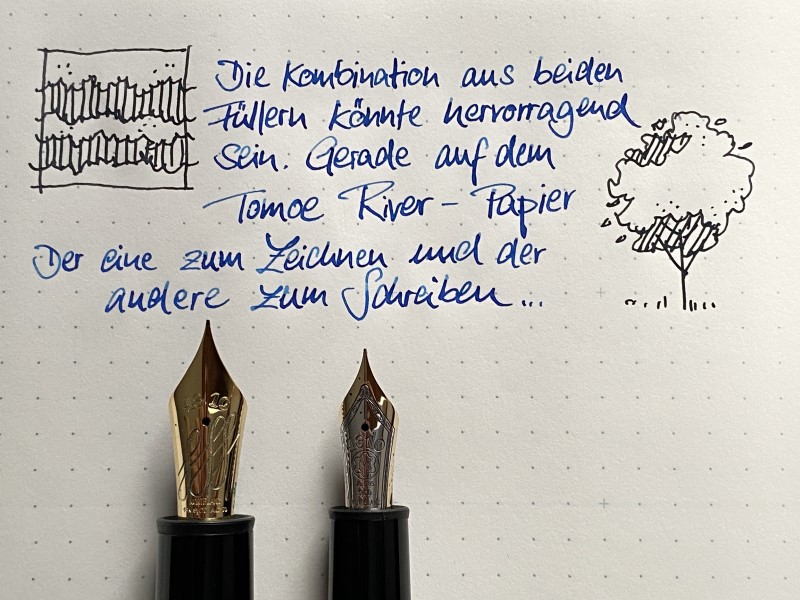 Die Kombination aus beiden
Füllern könnte hervorragend
sein. Gerade auf dem
Tomoe River - Papier
Der eine zum Zeichnen und der
andere zum Schreiben...